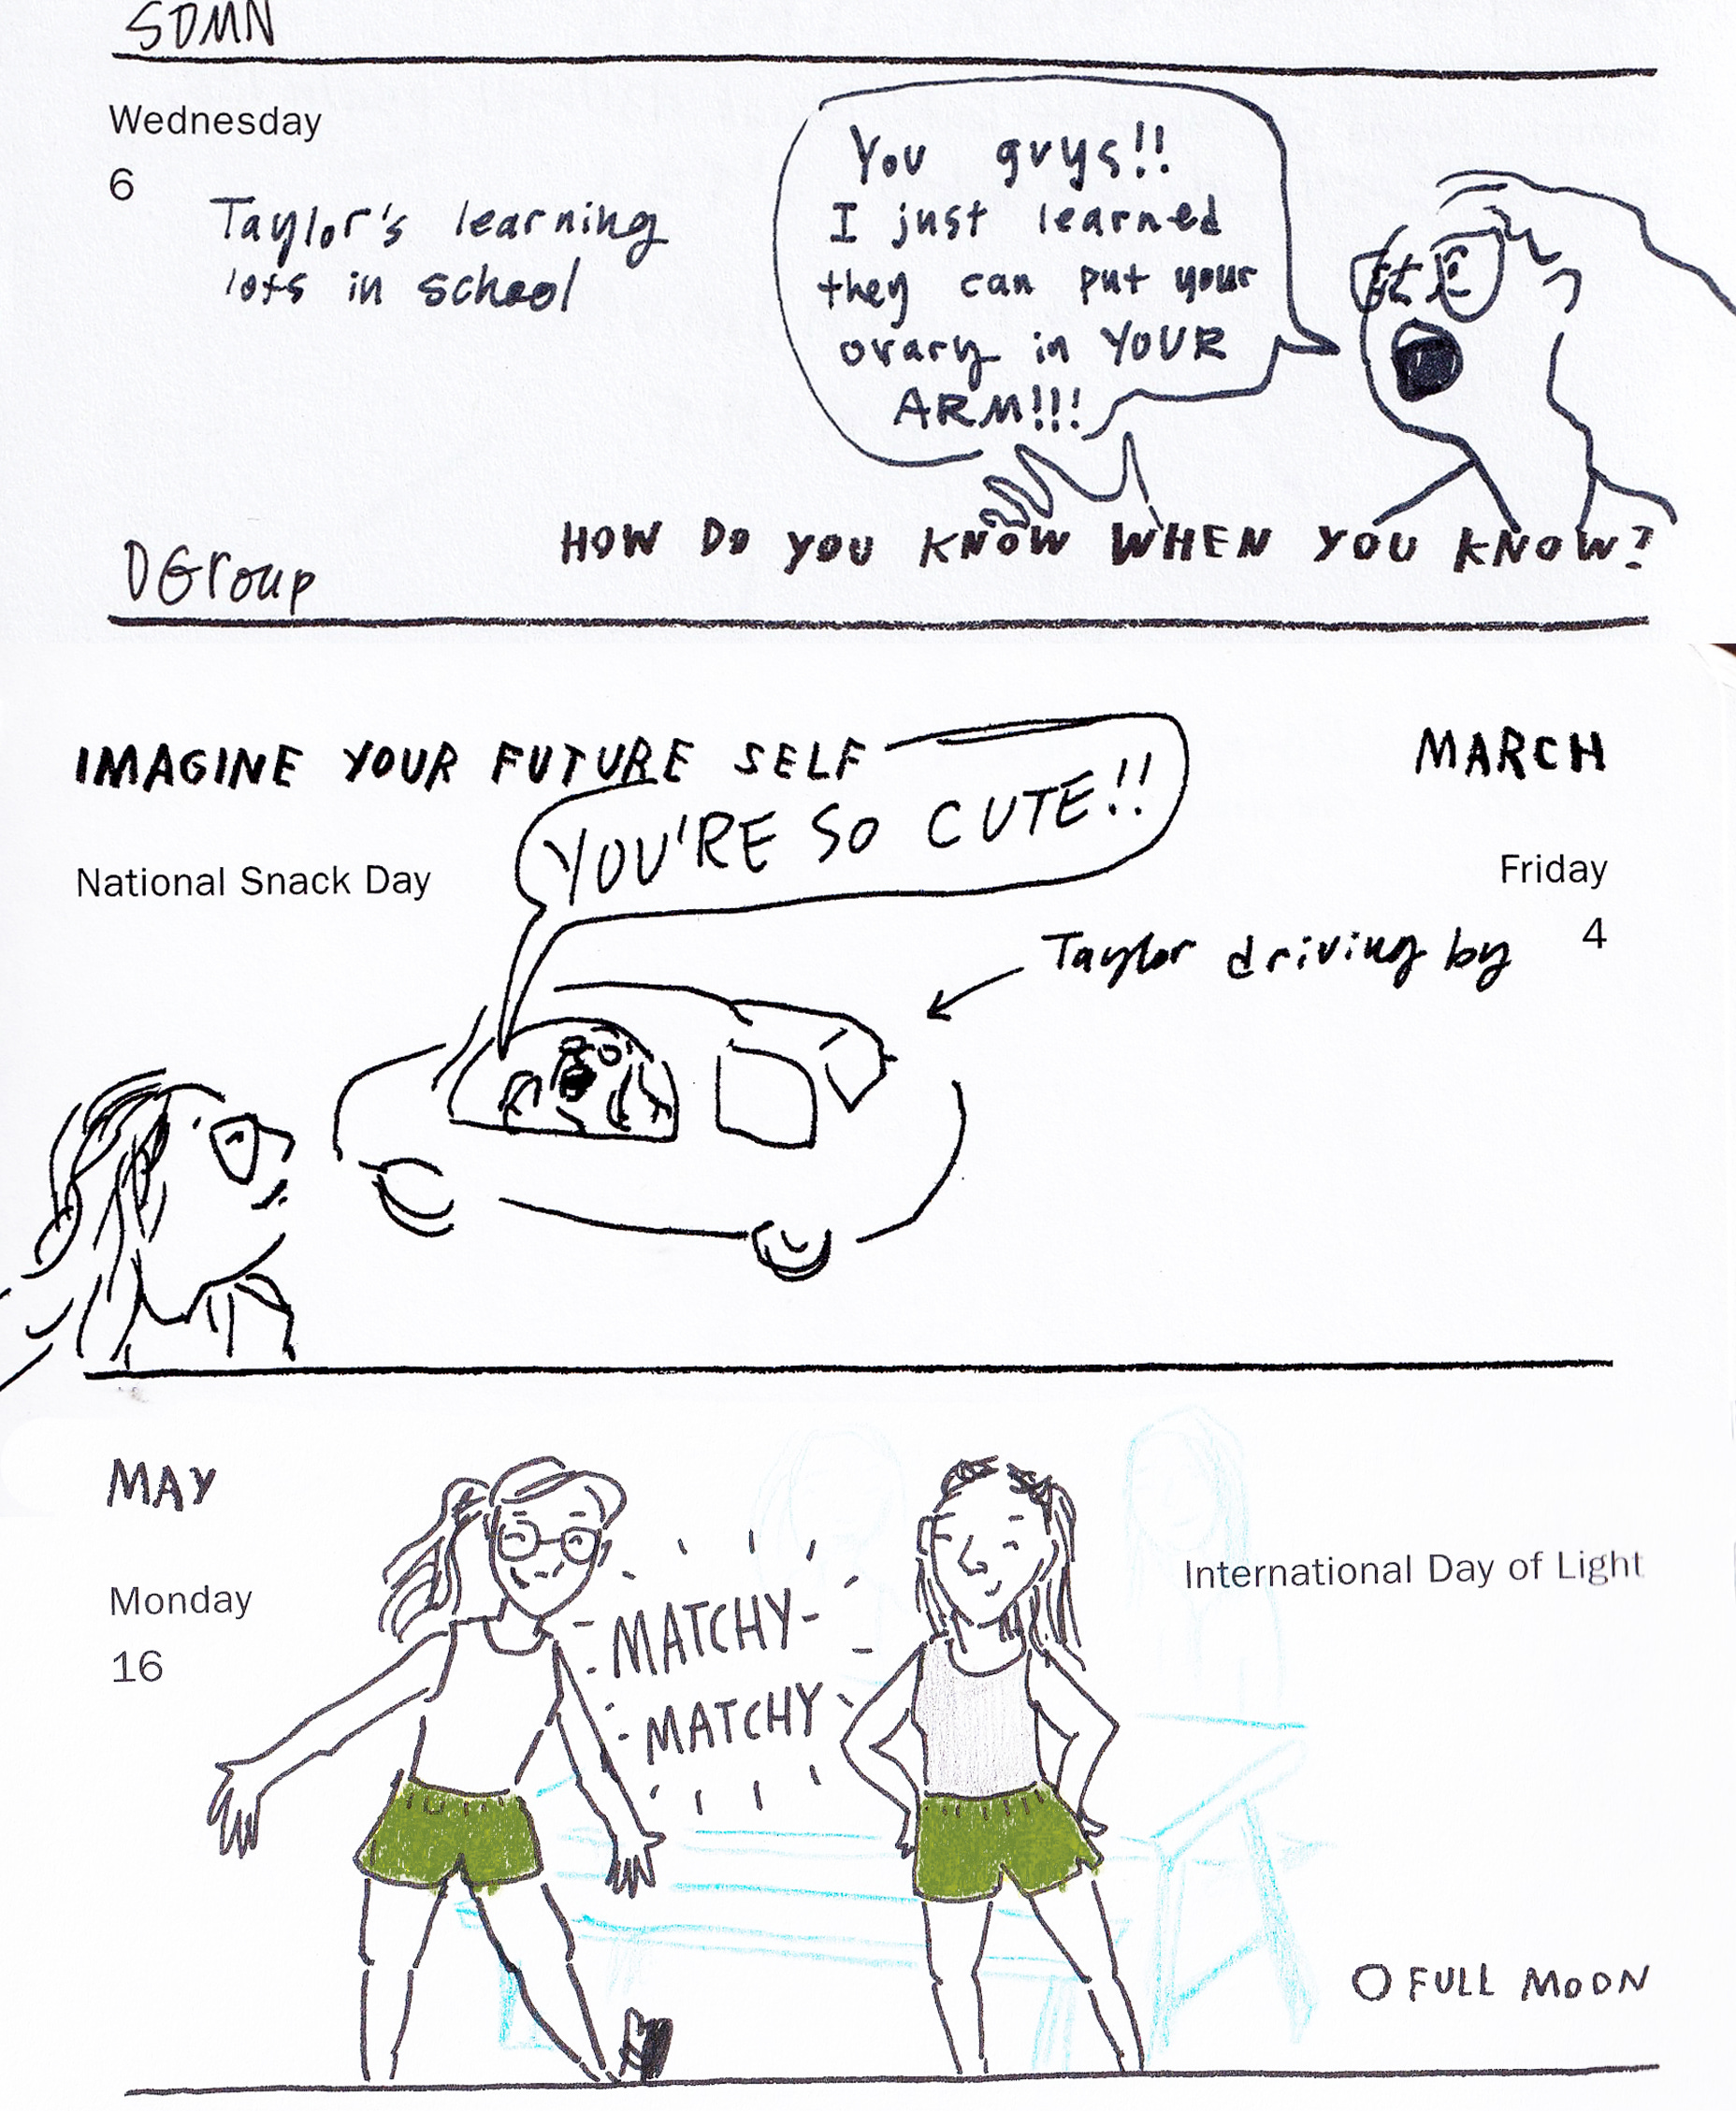 SDMN
Wednesday
6
Taylor's learning
lots in school
You guys!!
I just learned
they can put your
ovary in YOUR
ARM!!!
HOW DO YOU KNOW WHEN YOU KNOW?
DGroup
IMAGINE YOUR FUTURE SELF
MARCH
YOU'RE SO CUTE!!
National Snack Day
Friday
4
Taylor driving by
MAY
Monday
16
MATCHY-
MATCHY
International Day of Light
FULL MOON